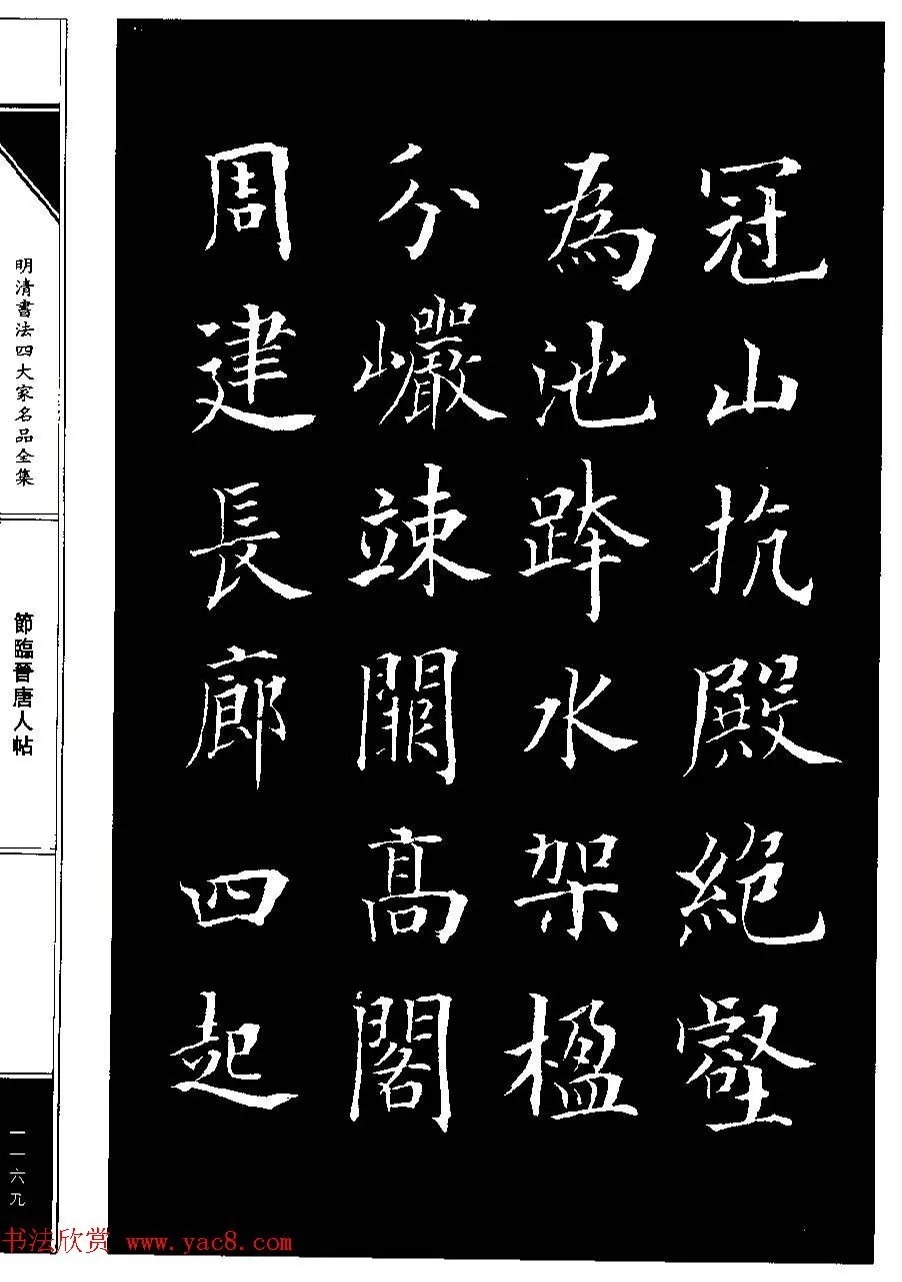 冠山抗殿絶壑
為池跨水架楹
分巖竦闕高閣
周建長廊四起
明清書法四大家名品全集
節臨晉唐人帖
一一六九
书法欣赏 www.yac8.com